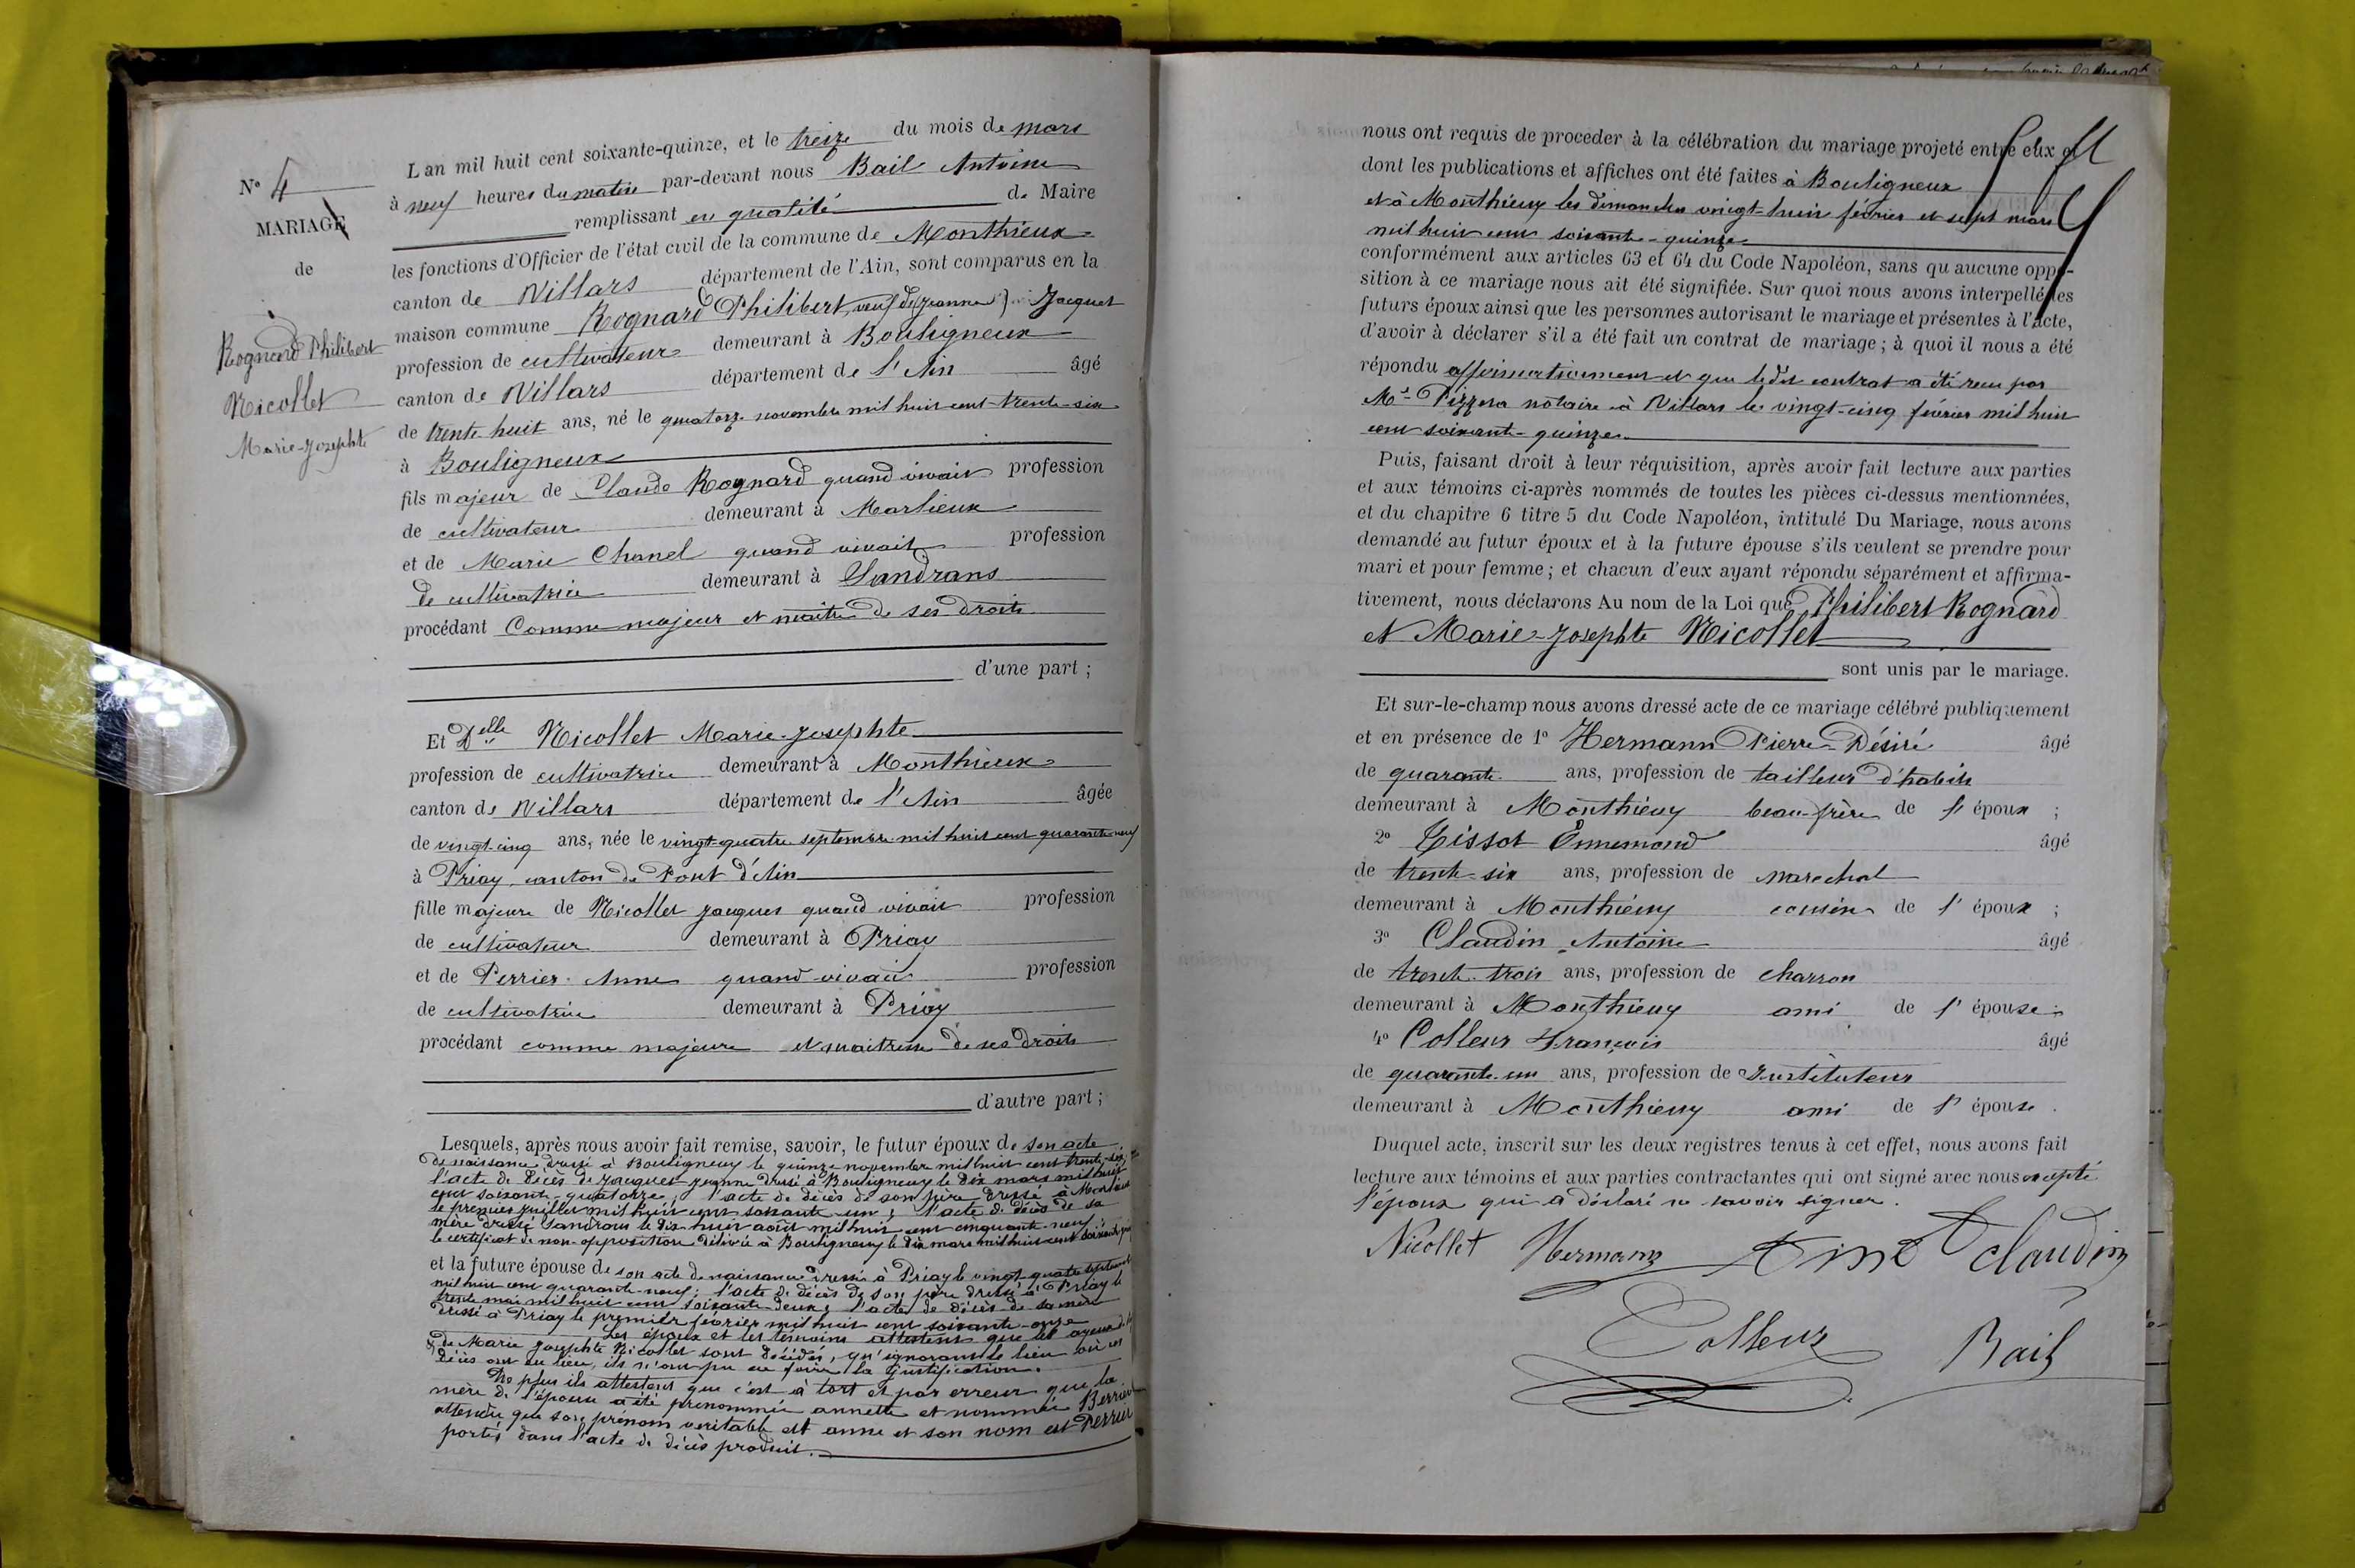 L'an mil huit cent soixante-quinze, et le treize du mois de mars
à neuf heures du matin par-devant nous Bail Antoine
remplissant en qualité de Maire
les fonctions d'Officier de l'état civil de la commune de Monthieux
canton de Villars département de l'Ain, sont comparus en la
maison commune Rognard Philibert, veuf de Jeanne Jacquet
profession de cultivateur demeurant à Bouligneux
canton de Villars département de l'Ain âgé
de trente huit ans, né le quatorze novembre mil huit cent trente-six
à Bouligneux
fils majeur de Claude Rognard quand vivait profession
de cultivateur demeurant à Marlieux
et de Marie Chanel quand vivait profession
de cultivatrice demeurant à Sandrans
procédant Comme majeur et maître de ses droits
d'une part ;
N° 4
MARIAGE
de
Rognard Philibert
Nicollet
Marie-Josephte
Et Delle Nicollet Marie-Josephte
profession de cultivatrice demeurant à Monthieux
canton de Villars département de l'Ain âgée
de vingt-cinq ans, née le vingt-quatre septembre mil huit cent quarante-neuf
à Priay, canton de Pont d'Ain
fille majeure de Nicollet Jacques quand vivait profession
de cultivateur demeurant à Priay
et de Perrier Anne quand vivait profession
de cultivatrice demeurant à Priay
procédant comme majeure et maitresse de ses droits
d'autre part ;
Lesquels, après nous avoir fait remise, savoir, le futur époux de son acte
de naissance dressé à Bouligneux le quinze novembre mil huit cent trente-six,
l'acte de décès de Jacquet Jeanne dressé à Bouligneux le dix mars mil huit
cent soixante-quatorze ; l'acte de décès de son père dressé à Marlieux
le premier juillet mil huit cent soixante-un ; l'acte de décès de sa
mère dressé Sandrans le dix-huit août mil huit cent cinquante-neuf ;
le certificat de non-opposition délivré à Bouligneux le dix mars mil huit cent
et la future épouse de son acte de naissance dressé à Priay le vingt-quatre septembre
mil huit cent quarante-neuf ; l'acte de décès de son père dressé à Priay le
trente mai mil huit cent soixante-deux ; l'acte de décès de sa mère
dressé à Priay le premier février mil huit cent soixante-onze
Les époux et les témoins attestent que les ayeux
de Marie Josephte Nicollet sont décédés, qu'ignorant le lieu où ces
décès ont eu lieu, ils n'ont pu en faire la justification.
De plus ils attestent que c'est à tort et par erreur que la
mère de l'épouse a été prénommée annette et nommée
attendu que son prénom veritable est anne et son nom est Perrier
portés dans l'acte de décès produit.
nous ont requis de proceder à la célébration du mariage projeté entre eux et
dont les publications et affiches ont été faites à Bouligneux
et à Monthieux les dimanches vingt-huit février et sept mars
mil huit cent soixante-quinze
conformément aux articles 63 et 64 du Code Napoléon, sans qu aucune oppo-
sition à ce mariage nous ait été signifiée. Sur quoi nous avons interpellé les
futurs époux ainsi que les personnes autorisant le mariage et présentes à l'acte,
d'avoir à déclarer s'il a été fait un contrat de mariage ; à quoi il nous a été
répondu affirmativement et que le dit contrat a été reçu par
Me Pizzera notaire à Villars le vingt-cinq février mil huit
cent soixante-quinze.
Puis, faisant droit à leur réquisition, après avoir fait lecture aux parties
et aux témoins ci-après nommés de toutes les pièces ci-dessus mentionnées,
et du chapitre 6 titre 5 du Code Napoléon, intitulé Du Mariage, nous avons
demandé au futur époux et à la future épouse s'ils veulent se prendre pour
mari et pour femme ; et chacun d'eux ayant répondu séparément et affirma-
tivement, nous déclarons Au nom de la Loi que Philibert Rognard
et Marie-Josephte Nicollet
sont unis par le mariage.
Et sur-le-champ nous avons dressé acte de ce mariage célébré publiquement
et en présence de 1° Hermann Pierre-Désiré âgé
de quarante ans, profession de tailleur d'habits
demeurant à Monthieux beau-frère de l'époux ;
2° Tissot Ennemond âgé
de trente-six ans, profession de marechal
demeurant à Monthieux cousin de l'époux ;
3° Claudin Antoine âgé
de trente-trois ans, profession de charron
demeurant à Monthieux ami de l'épouse ;
4° Colleur François âgé
de quarante-un ans, profession de Instituteur
demeurant à Monthieux ami de l'épouse.
Duquel acte, inscrit sur les deux registres tenus à cet effet, nous avons fait
lecture aux témoins et aux parties contractantes qui ont signé avec nous excepté
l'époux qui a déclaré ne savoir signer.
Nicollet Hermann Claudin
Colleur Bail